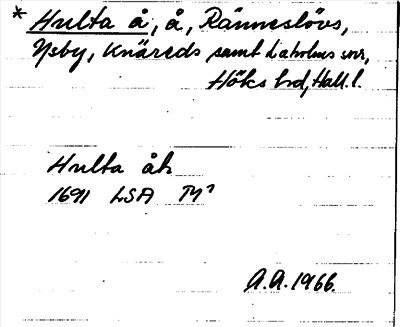 * Hulta å, å, Ränneslövs,
Ysby, Knäreds samt Laholms snr,
Höks hd, Hall. l.
Hulta åh
1691 LSA
A.A. 1966.